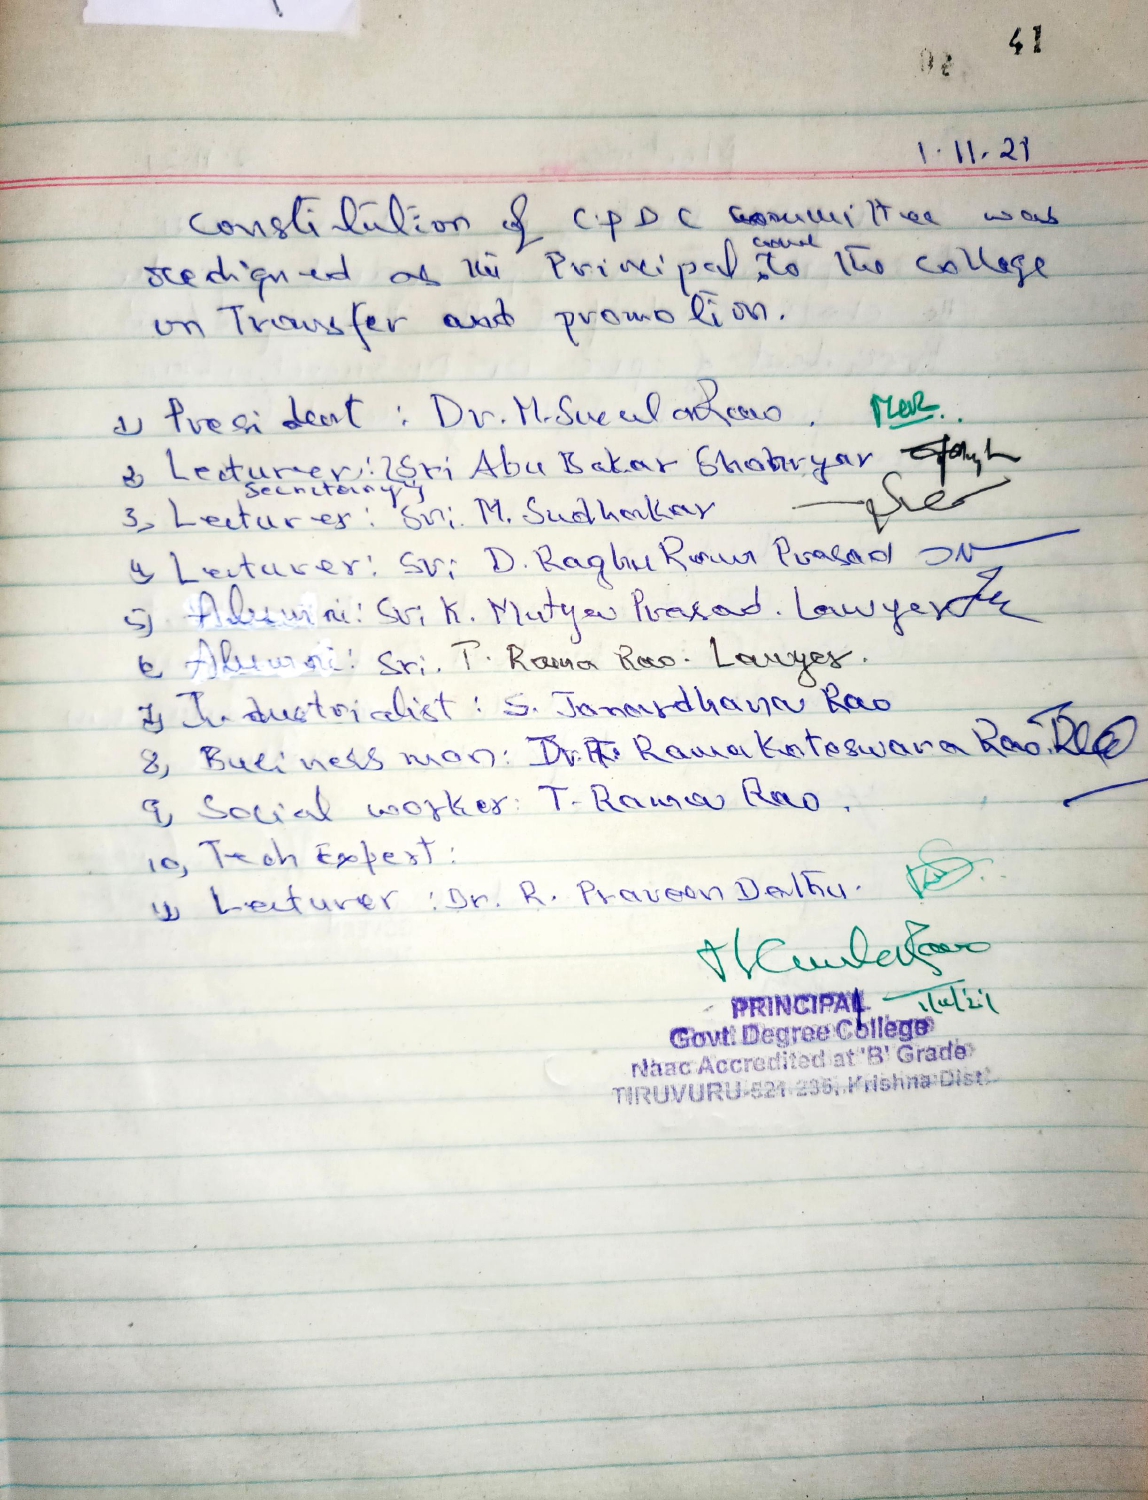 41
1.11.21
Constitution of C.P.D.C committee was
redigned as the Principal came to the college
on Transfer and promotion.
1) President : Dr. M.
2) Lecturer: Sri Abu Bakar Shahryar
Secretary
3, Lecturer: Sri. M. Sudhakar
4, Lecturer: Sri D. Raghu Ram Prasad
5) Alumini: Sri K. Mutya Prasad. Lawyer
6, Alumni: Sri. T. Rama Rao. Lawyer.
7) Industrialist : S. Janardhana Rao
8, Business man: Rama Koteswara Rao.
9, Social worker: T. Rama Rao.
10, Tech Expert:
11) Lecturer : Dr. R. Praveen
1/11/21
PRINCIPAL
Govt. Degree College
Naac Accredited at 'B' Grade
TIRUVURU-521 235, Krishna Dist.